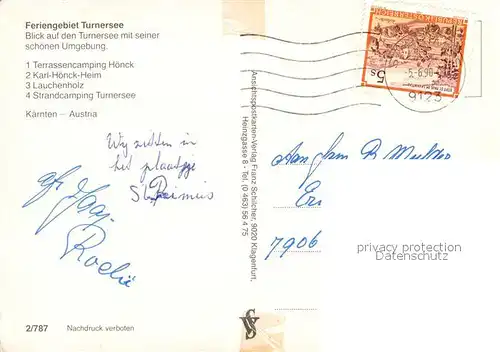 Feriengebiet Turnersee
Blick auf den Turnersee mit seiner
schönen Umgebung.
1 Terrassencamping Hönck
2 Karl-Hönck-Heim
3 Lauchenholz
4 Strandcamping Turnersee
Kärnten – Austria
Wy zitten in
het plaatsje
St Primus
Roelie
2/787 Nachdruck verboten
Ansichtspostkarten-Verlag Franz Schilcher, 9020 Klagenfurt,
Heinzgasse 8 - Tel. (0 463) 56 4 75
REPUBLIK ÖSTERREICH
5s
-5.-6.90-
9123
Fam R Mulder
7906
privacy protection
Datenschutz